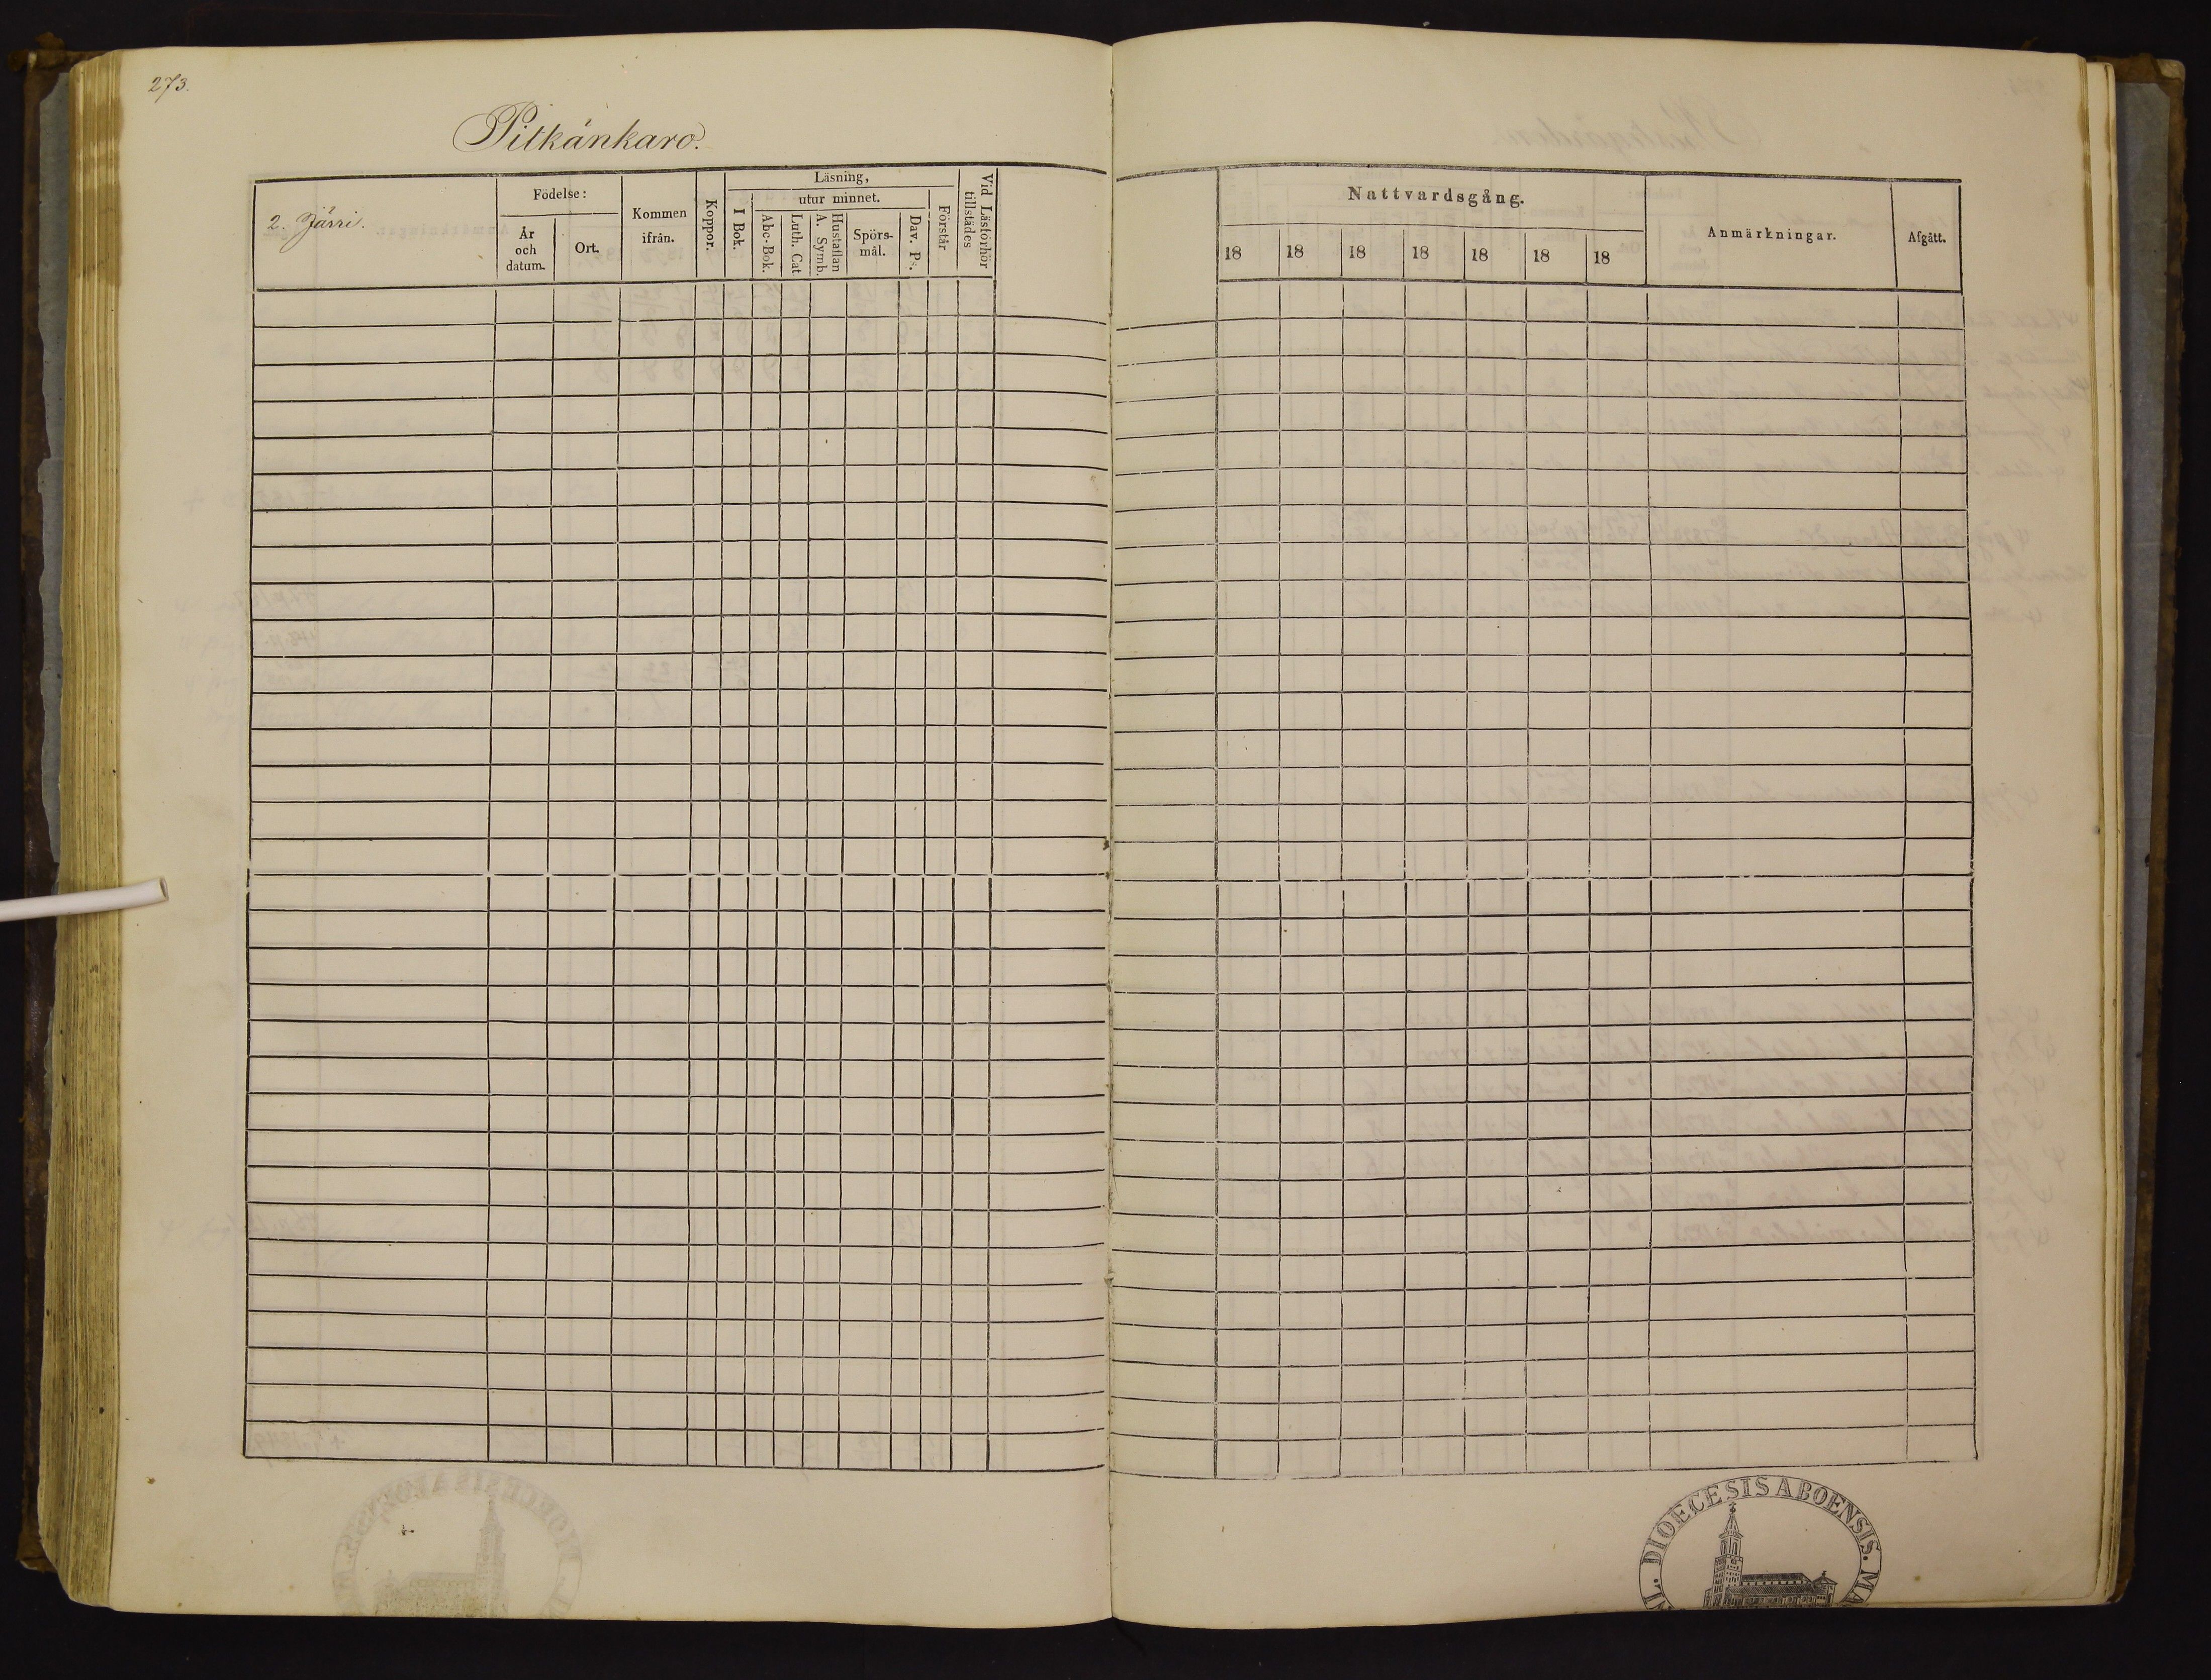 273.
Pitkänkaro.
2. Järri.
Födelse:
År och datum.
Ort.
Kommen ifrån.
Koppor.
Läsning,
I Bok.
utur minnet.
Abc-Bok.
Luth. Cat
Hustaflan A. Symb.
Spörs-mål.
Dav. Ps.
Förstår
Vid Läsförhör tillstädes
Nattvardsgång.
18 18 18 18 18 18 18
Anmärkningar.
Afgått.
DIOECESIS ABOENSIS. MA